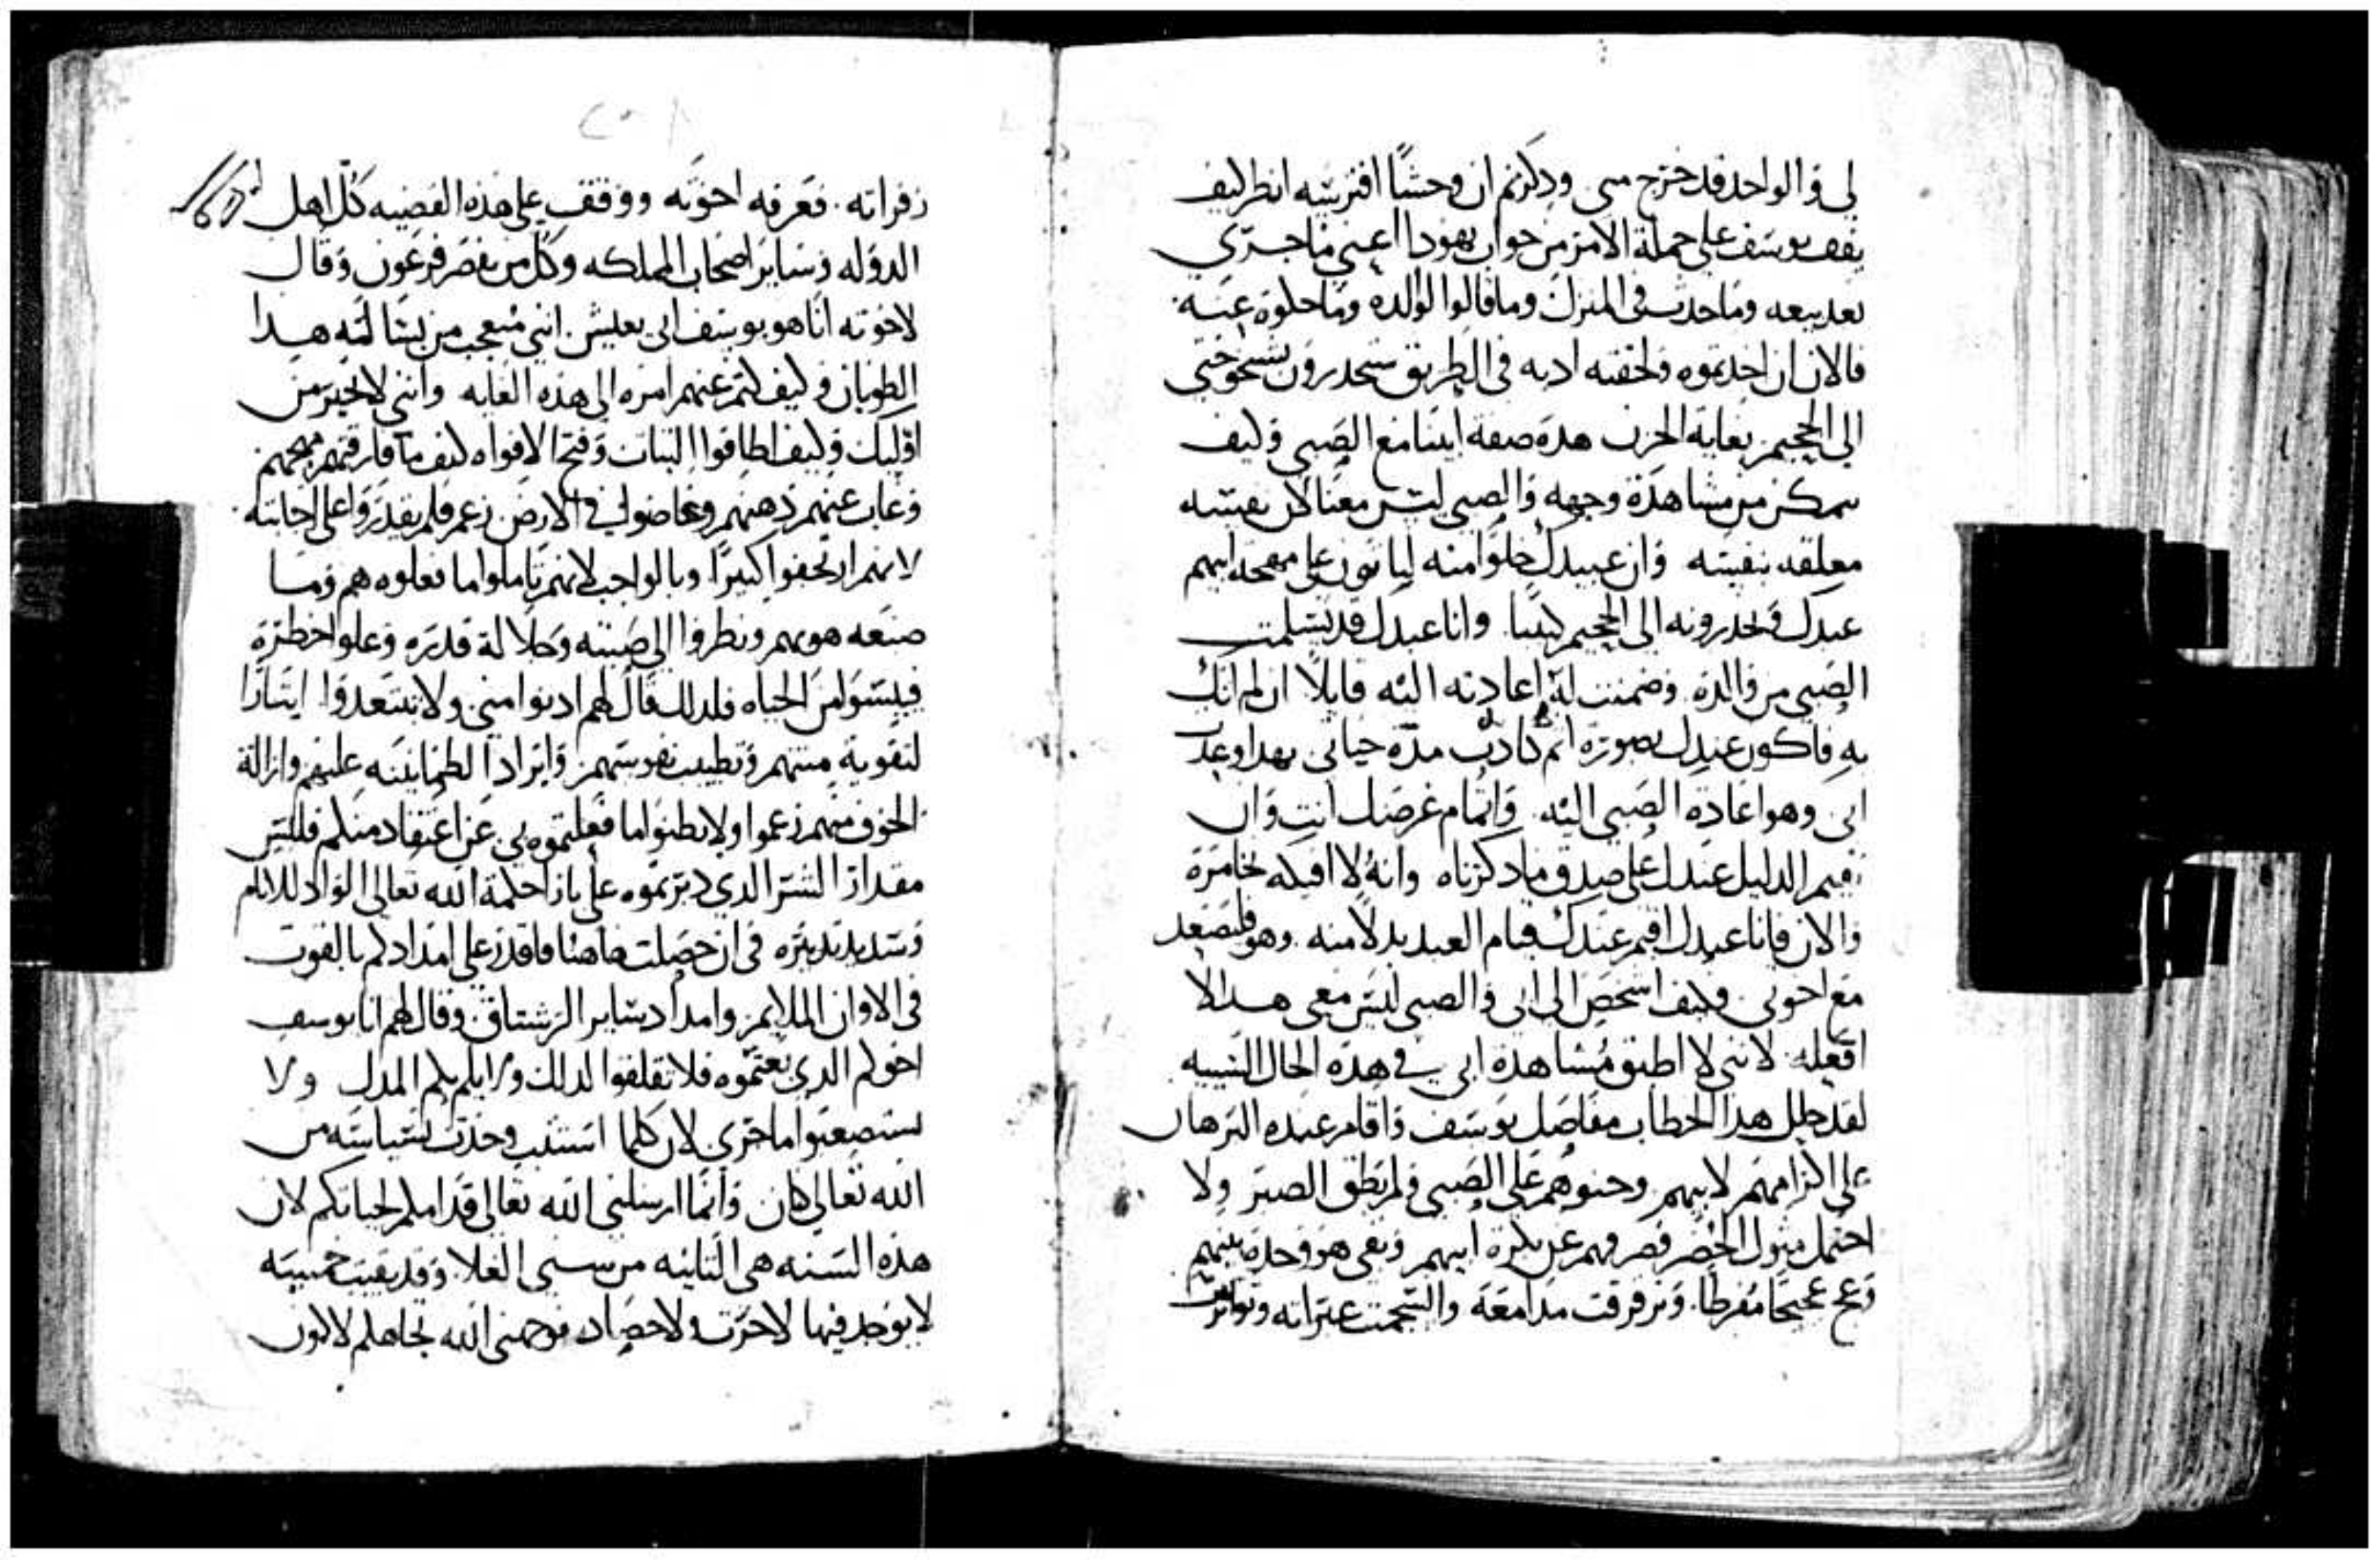 لى والواحد قد خرج مني وذكرتم ان وحشًا افترسه انظر كيف
يقف يوسف على جملة الامر من جواب يهودا اعني ما جرى
بعد بيعه وما حدث في المنزل وما قالوا لوالده وما حكوه عنه
فالان ان اخدتموه ولحقته اديه في الطريق ستحدرون شيخوختى
الى الجحيم بغاية الحزن هده صفة ابينا مع الصبى وكيف
يمكن من مشاهدة وجهه والصبى ليس معنا لان نفسه
معلقه بنفسه وان عبيدك خلوا منه لياتون على مهجة ابيهم
عبدك ويحدرونه الى الجحيم كيبا وانا عبدك قد تسلمت
الصبى من والده وضمنت له اعادته اليه قايلًا ان لم اتك
به فاكون عندك بصورة اثم كاذب مدة حياتى بهدا وعدت
ابى وهو اعادة الصبى اليه واتمام غرضك انت وان
نقيم الدليل عندك على صدق ما دكرناه وانه لا افيكه تخامره
والان فانا عبدك اقيم عندك قيام العبد بدلًا منه وهو فليصعد
مع اخوتى وكيف اشخص الى ابى والصبى ليس معى هدا لا
افعله لاننى لا اطيق مشاهدة ابى في هده الحال السييه
لقد حلل هدا الخطاب مفاصل يوسف واقام عنده البرهان
على اكرامهم لابيهم وحنوهم على الصبى ولم يطق الصبر ولا
احتمل مثول الحضر فصرفهم عن بكرة ابيهم وبقى هو وحده بينهم
وعج عجيجًا مفرطًا وترقرقت مدامعه وانسجمت عبراته وتواترت
زفراته فعرفه اخوته ووقف على هذه القضيه كل اهل
الدوله وساير اصحاب المملكه وكل من بقصر فرعون وقال
لاخوته انا هو يوسف ابى يعيش اننى متعجب من بسالة هدا
الطوبان وكيف كتم عنهم امره الى هذه الغايه واننى لاتحير من
اوليك وكيف اطاقوا الثبات وفتح الافواه كيف ما فارقتهم مهجهم
وغاب عنهم ذهنهم وغاضوا في الارض زعم فلم يقدروا على اجابته
لانهم ارتجفوا كثيرًا وبالواجب لانهم تاملوا ما فعلوه هم وما
صنعه هو بهم ونظروا الى صيته وجلالة قدره وعلو خطره
فييسوا من الحياه فلدلك قال لهم ادنوا منى ولا تبتعدوا ايثارًا
لتقوية منتهم وتطييب نفوسهم وايرادًا لطمانينه عليهم وازالة
الخوف منهم زعموا ولا تظنوا ما فعلتموه بى عن اعتقاد منكم فليس
مقدار الشر الدي دبرتموه على بازا حكمة الله تعالى الواد للانام
وسديد تدبيره في ان حصلت هاهنا فاقدر على امدادكم بالقوت
فى الاوان الملايم وامداد ساير الرستاق وقال لهم انا يوسف
اخوكم الدى بعتموه فلا تقلقوا لدلك ولا يلم بكم المدل ولا
تستصعبوا ما جرى لان كلما استتب وحدث بسياسه من
الله تعالى كان وانما ارسلنى الله تعالى قدامكم لحياتكم لان
هذه السنه هى الثانيه من سنى الغلا وقد بقيت خمسه
لا يوجد فيها لا حرث ولا حصاد فوجهنى الله تجاهكم لاكون